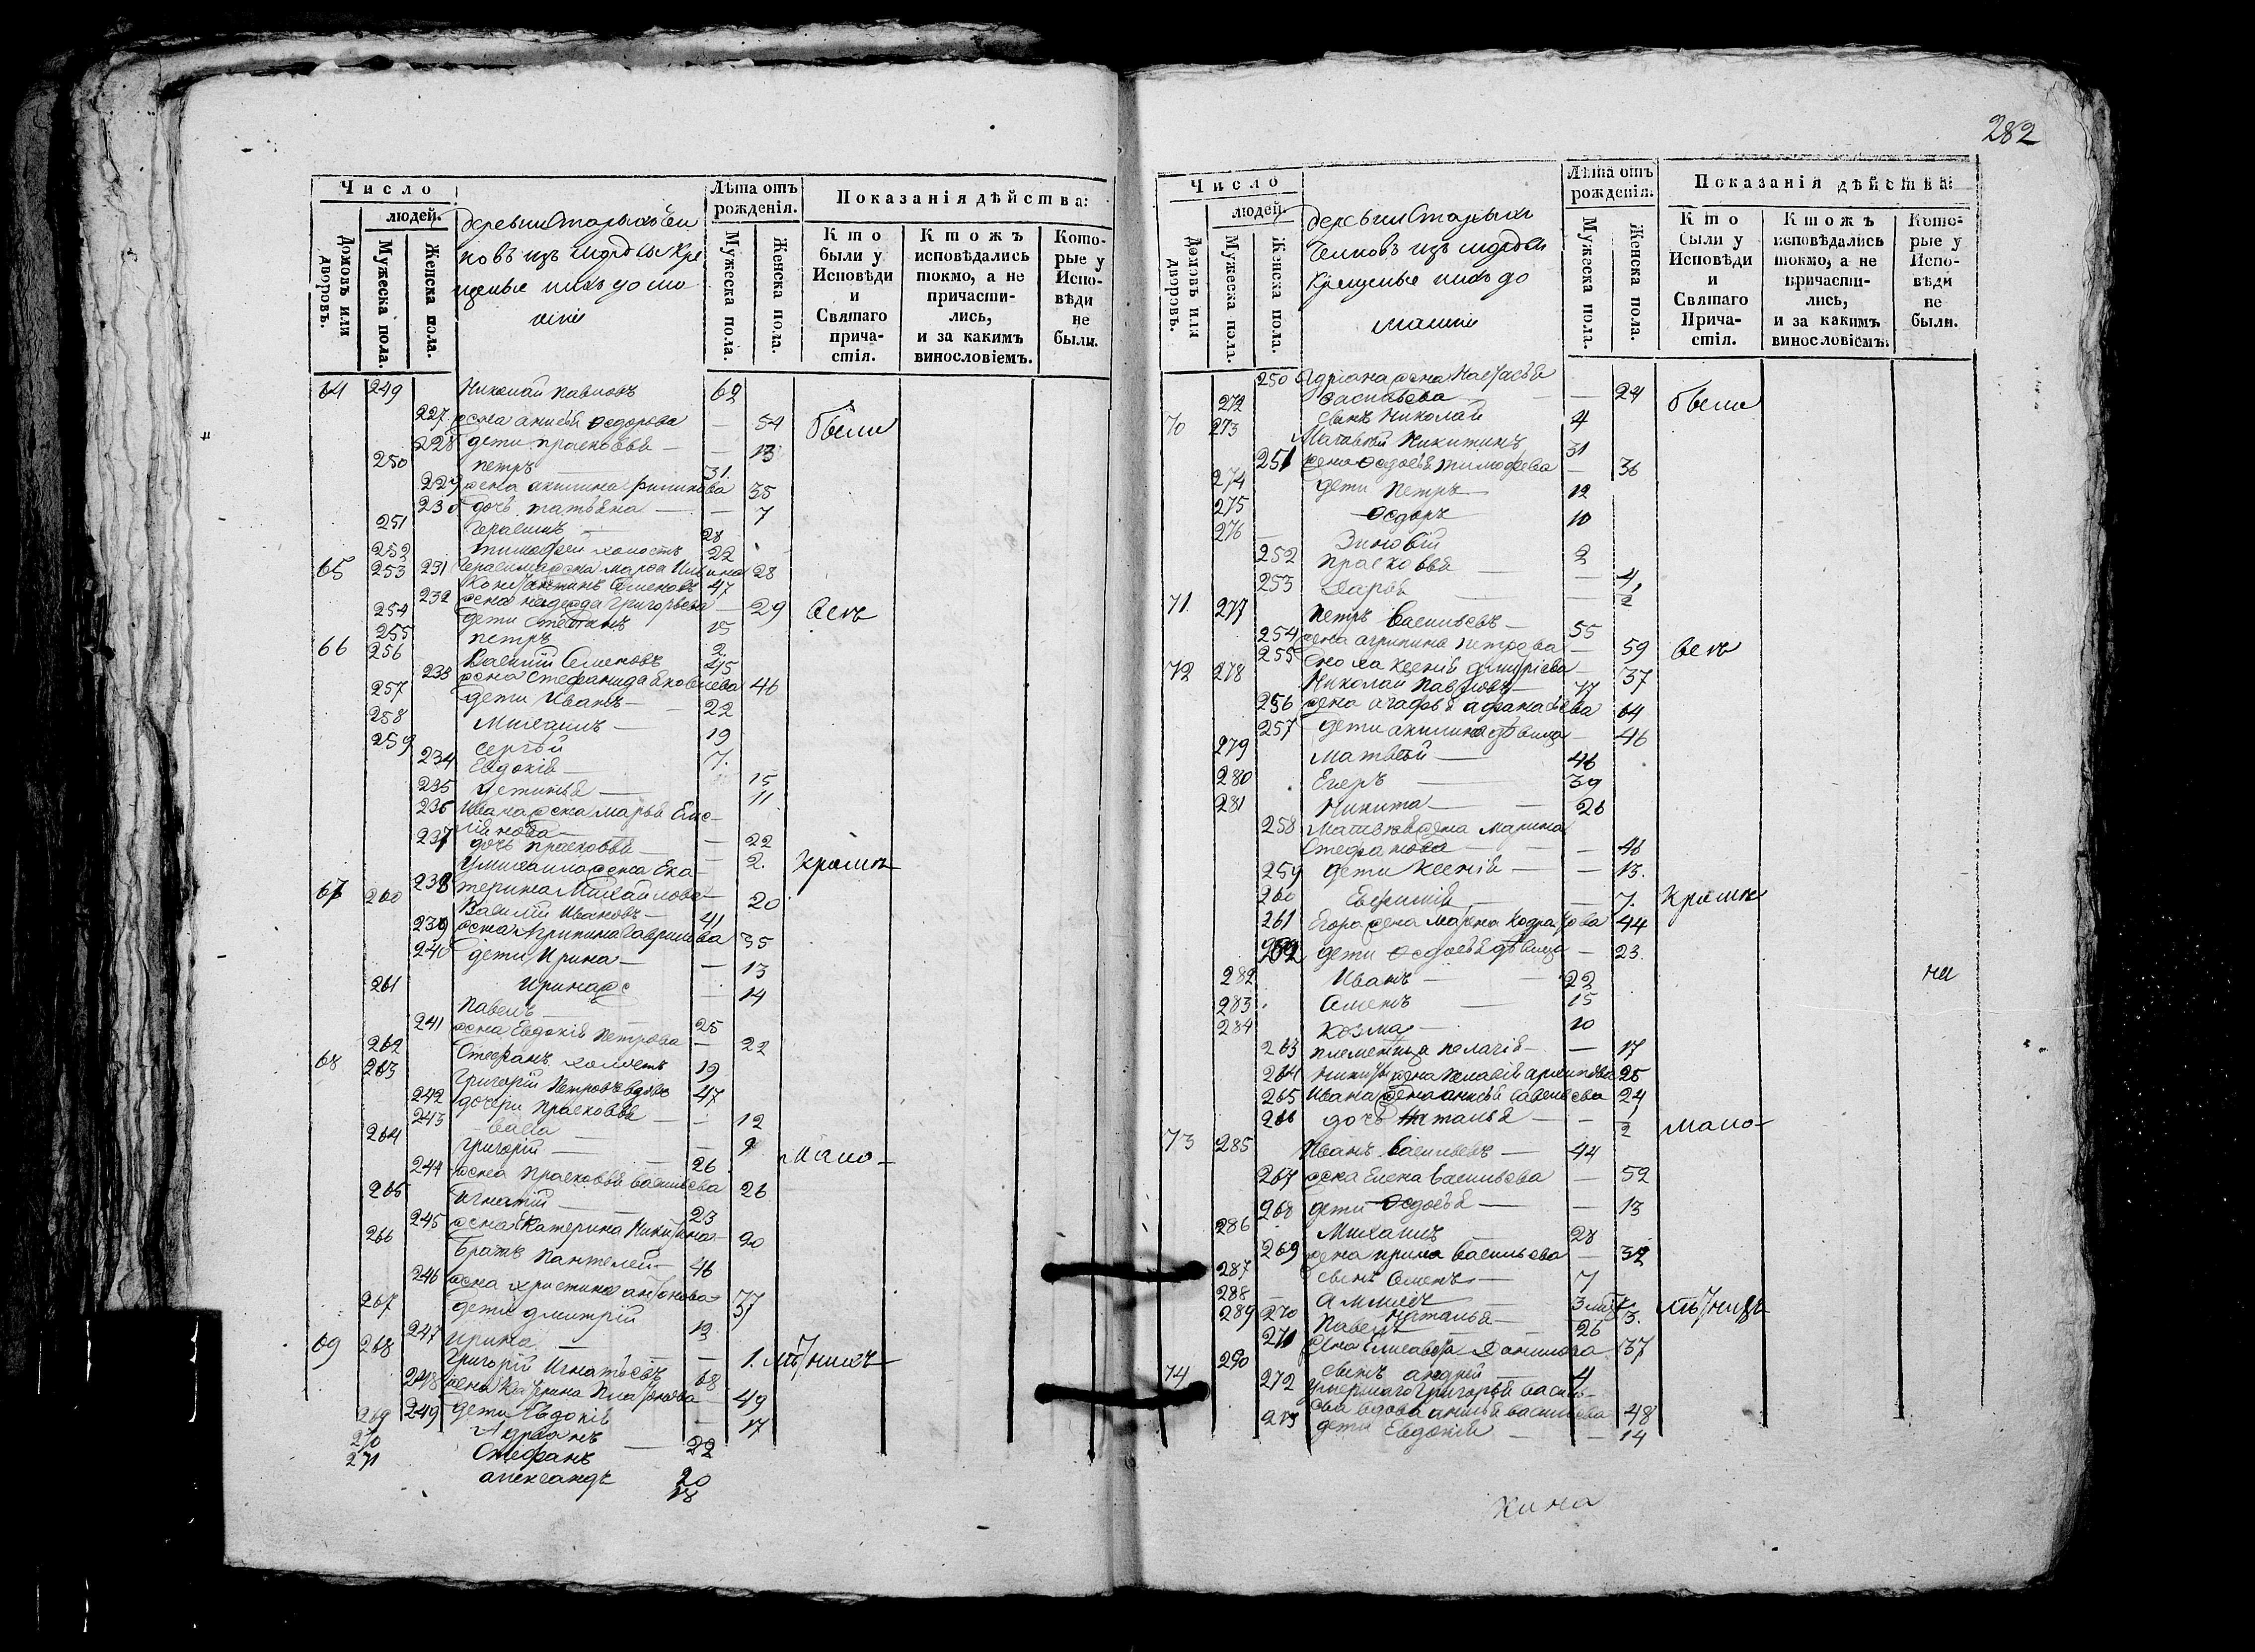 282
Число
Лѣта отъ рожденія.
Показанія дѣйства:
людей.
Домовъ или дворовъ.
Мужеска пола.
Женска пола.
Мужеска пола.
Женска пола.
Кто были у Исповѣди и Святаго причастія.
Ктожъ исповѣдались токмо, а не причастились, и за какимъ винословіемъ.
Которые у Исповѣди не были.
деревни Старыхъ
новъ изъ мордвы кре
щеные ихъ домо
64 249 Николай Павловъ 62
227 жена анисья Ѳедорова — 54 были
228 дети Прасковья — 13
250 Петръ 31
229 жена акилина 35
230 дочь татьяна — 7
251 Герасимъ 28
252 тимофей холостъ 22
231 Герасима жена марѳа 28
65 253 Константинъ Семеновъ 47
232 жена надежда Григорьева — 29 всѣ
254 дети Степанъ 15
255 петръ 2
66 256 Василій Семеновъ 45
233 жена Стефанида Яковлева 46
257 дети Иванъ — 22
258 Михаилъ — 19
259 Сергѣй 7
234 Евдокія — 15
235 Устинья — 11
236 Ивана жена марья Еме-
лянова — 22
237 дочь прасковья — 2. кромѣ
Михаила жена Ека-
238 терина Михайлова — 20
67 260 Василій Ивановъ — 41
239 жена Агрипина Гаврилова 35
240 дети Ирина — 13
Ирина же — 14
261 Павелъ — 25
241 жена Евдокія Петрова — 22
262 Стефанъ холостъ 19
68 263 Григорій Петровъ вдовъ 47
242 дочери прасковья — 12
243 васса — 9
264 Григорій — 26 мало-
244 жена прасковья васильева 26
265 Игнатій — 23
245 жена Катерина Никитина 20
266 братъ Пантелей — 46
246 жена христина антонова 37
267 дети дмитрій 13
247 ирина — 1. лѣтнихъ
69 268 Григорій Игнатьевъ 68
248 жена Катерина Платонова — 49
249 дети Евдокія — 17
269 Адріанъ — 22
270 Стефанъ 20
271 александръ 18
Число
Лѣта отъ рожденія.
Показанія дѣйства:
людей.
Домовъ или дворовъ.
Мужеска пола.
Женска пола.
Мужеска пола.
Женска пола.
Кто были у Исповѣди и Святаго Причастія.
Ктожъ исповѣдались токмо, а не причастились, и за какимъ винословіемъ.
Которые у Исповѣди не были.
деревни Старыхъ
изъ мордвы
крещеные ихъ до
машніи
250 Адріана жена Настасья
васильева — 24 были
272 сынъ Николай 4
70 273 Матвѣй Никитинъ 31
251 жена Ѳедосья тимофеева — 36
274 дети Петръ — 12
275 Ѳедоръ 10
276 Зиновій 2
252 прасковья — 4
253 Дарья — 2
71 277 Петръ Васильевъ — 55
254 жена агрипина петрова — 59 всѣ
255 сноха ксенія димитріева — 37
72 278 Николай Павловъ — 77
256 жена агафья афанасьева 64
257 дети акилина дѣвица — 46
279 Матвѣй — 46
280 Егоръ — 39
281 Никита — 26
258 Матвѣя жена Марина
Стефанова — 46
259 дети ксенія — 13.
260 Евфимія — 7. кромѣ
261 Егора жена Марина 44
262 дети Ѳедосья дѣвица — 23.
282 Иванъ — 22 на
283 Семенъ 15
284 козма — 10
263 племяница пелагія — 17
264 Никиты жена пелагія архипова 25
265 Ивана жена анисья савельева 24
266 дочь Наталья — 2 мало-
73 285 Иванъ Васильевъ — 44
267 жена Елена васильева — 52
268 дети Ѳедосья — 13
286 Михаилъ 28
269 жена ирина Васильева — 32
287 сынъ Семенъ — 7
288
270 Наталья — 3. лѣтнихъ
289 Павелъ — 26
271 жена Елисавета Данилова 37
290 сынъ андрей 4
74 Умершаго Григорья Василь-
272 ева вдова анисья васильева 48
273 дети Евдокія — 14